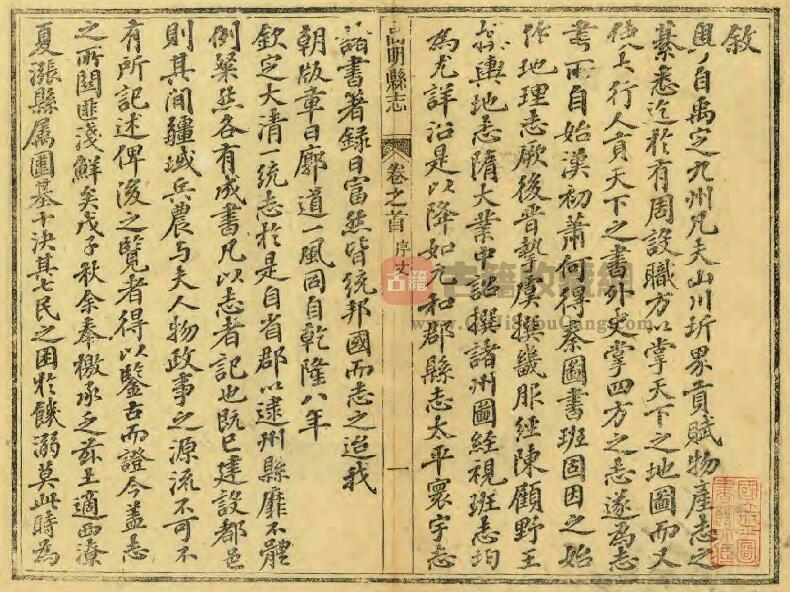 敘
粤自禹定九州凡夫山川圻界貢賦物產志之
綦悉迄於有周設職方以掌天下之地圖而又
使大行人貢天下之書外史掌四方之志遂為志
書所自始漢初蕭何得秦圖書班固因之始
作地理志厥後晉摯虞撰畿服經陳顧野王
輿地志隋大業中詔撰諸州圖經視班志均
為尤詳沿是以降如元和郡縣志太平寰宇志
高明縣志
卷之首
序文
一
諸書著録日富然皆統邦國而志之迨我
朝版章日廓道一風同自乾隆八年
欽定大清一統志於是自省郡以逮州縣靡不體
例燦然各有成書凡以志者記也既已建設都邑
則其間疆域兵農与夫人物政事之源流不可不
有所記述俾後之覽者得以鑒古而證今蓋志
之所關匪淺鮮矣戊子秋余奉檄承乏茲土適西潦
夏漲縣属圍基十決其七民之困於饑溺莫此時為
古籍
古籍收藏網